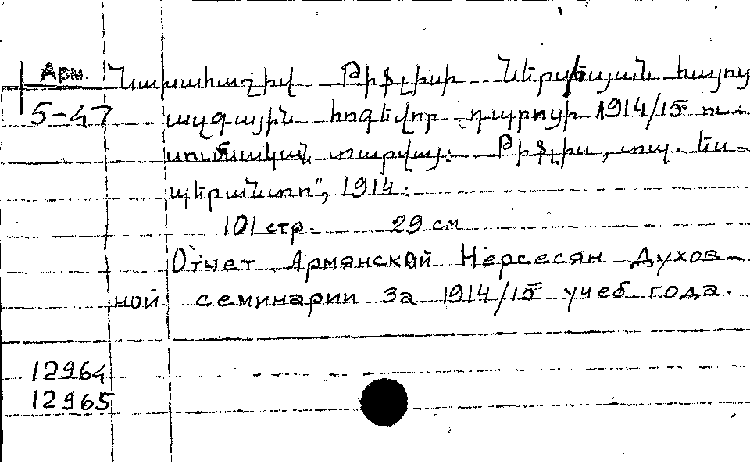 Арм. Նախահաշիվ Թիֆլիսի Ներսեսյան հայոց
5-47 ազգային հոգևոր դպրոցի 1914/15 ու-
սումնական տարվայ: Թիֆլիս, տպ. Էս-
պերանտո", 1914:
101 стр. 29 см
Отчет Армянской Нерсесян Духов-
ной семинарии за 1914/15 учеб года.
12964
12965